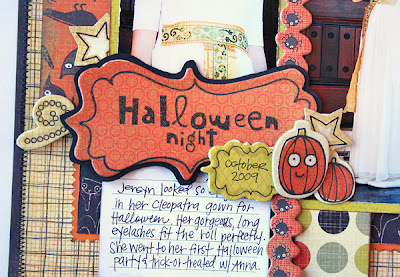 Halloween
night
october
2009
Jensyn looked so
in her Cleopatra gown for
Halloween. Her gorgeous, long
eyelashes fit the roll perfectly.
She went to her first Halloween
party & trick-or-treated w/ Anna.